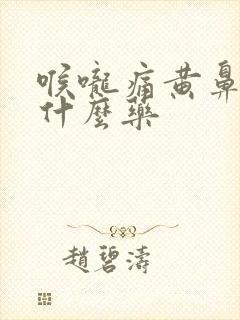 喉嚨痛黄鼻
什麼藥
趙碧濤